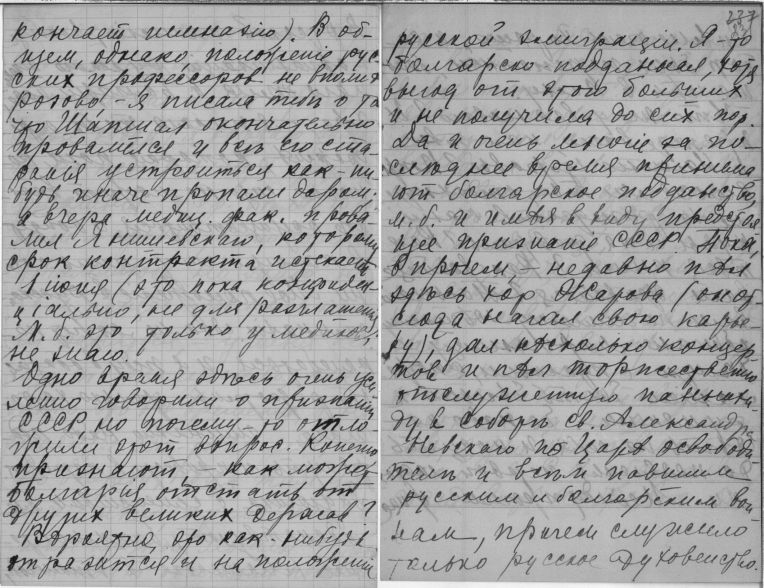 кончает гимназію). В об-
щем, однако, положеніе рус-
ских профессоров не вполнѣ
розово – я писала тебѣ о том
что Шапшал окончательно
провалился и всѣ его ста-
ранія устроиться как-ни-
будь иначе пропали даром.
а вчера медиц. фак. прова
лил Янишевскаго, которому
срок контракта истекает
1 іюня (это пока конфиден-
ціально, не для разглашенія
М.б. это только у медиков,
не знаю.
Одно время здѣсь очень уси
ленно говорили о признаніи
СССР, но почему-то отло
жили этот вопрос. Конечно
признают, – как может
Болгарія отстать от
других великих держав?
Вѣроятно, это как-нибудь
отразится и на положеніи
237
русской эмиграціи. Я-то
болгарско подданная, хотя
выгод от этого больших
и не получила до сих пор.
Да и очень многіе за по-
слѣднее время принима
ют болгарское подданство,
м.б. и имѣя в виду предстоя
щее признаніе СССР. Пока,
впрочем, – недавно пѣл
здѣсь хор Жарова (он от
сюда начал свою карье-
ру), дал нѣсколько концер
тов и пѣл торжественно
отслуженную панихи-
ду в соборѣ св. Александра
Невскаго по Царѣ освободи
телѣ и всѣм павшим
русским и болгарским вои
нам, причем служило
только русское духовенство.